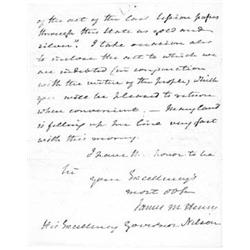 of the act of the last session passes
through this State as gold and
silver". I take occasion also
to inclose the act to which we
are indebted (in conjunction
with the virtue of the people) which
you will be pleased to return
when convenient — Maryland
is filling up her line very fast
with this money.
I have the honor to be
Sir
your Excellency's
most obt
James McHenry
His Excellency Governor Nelson